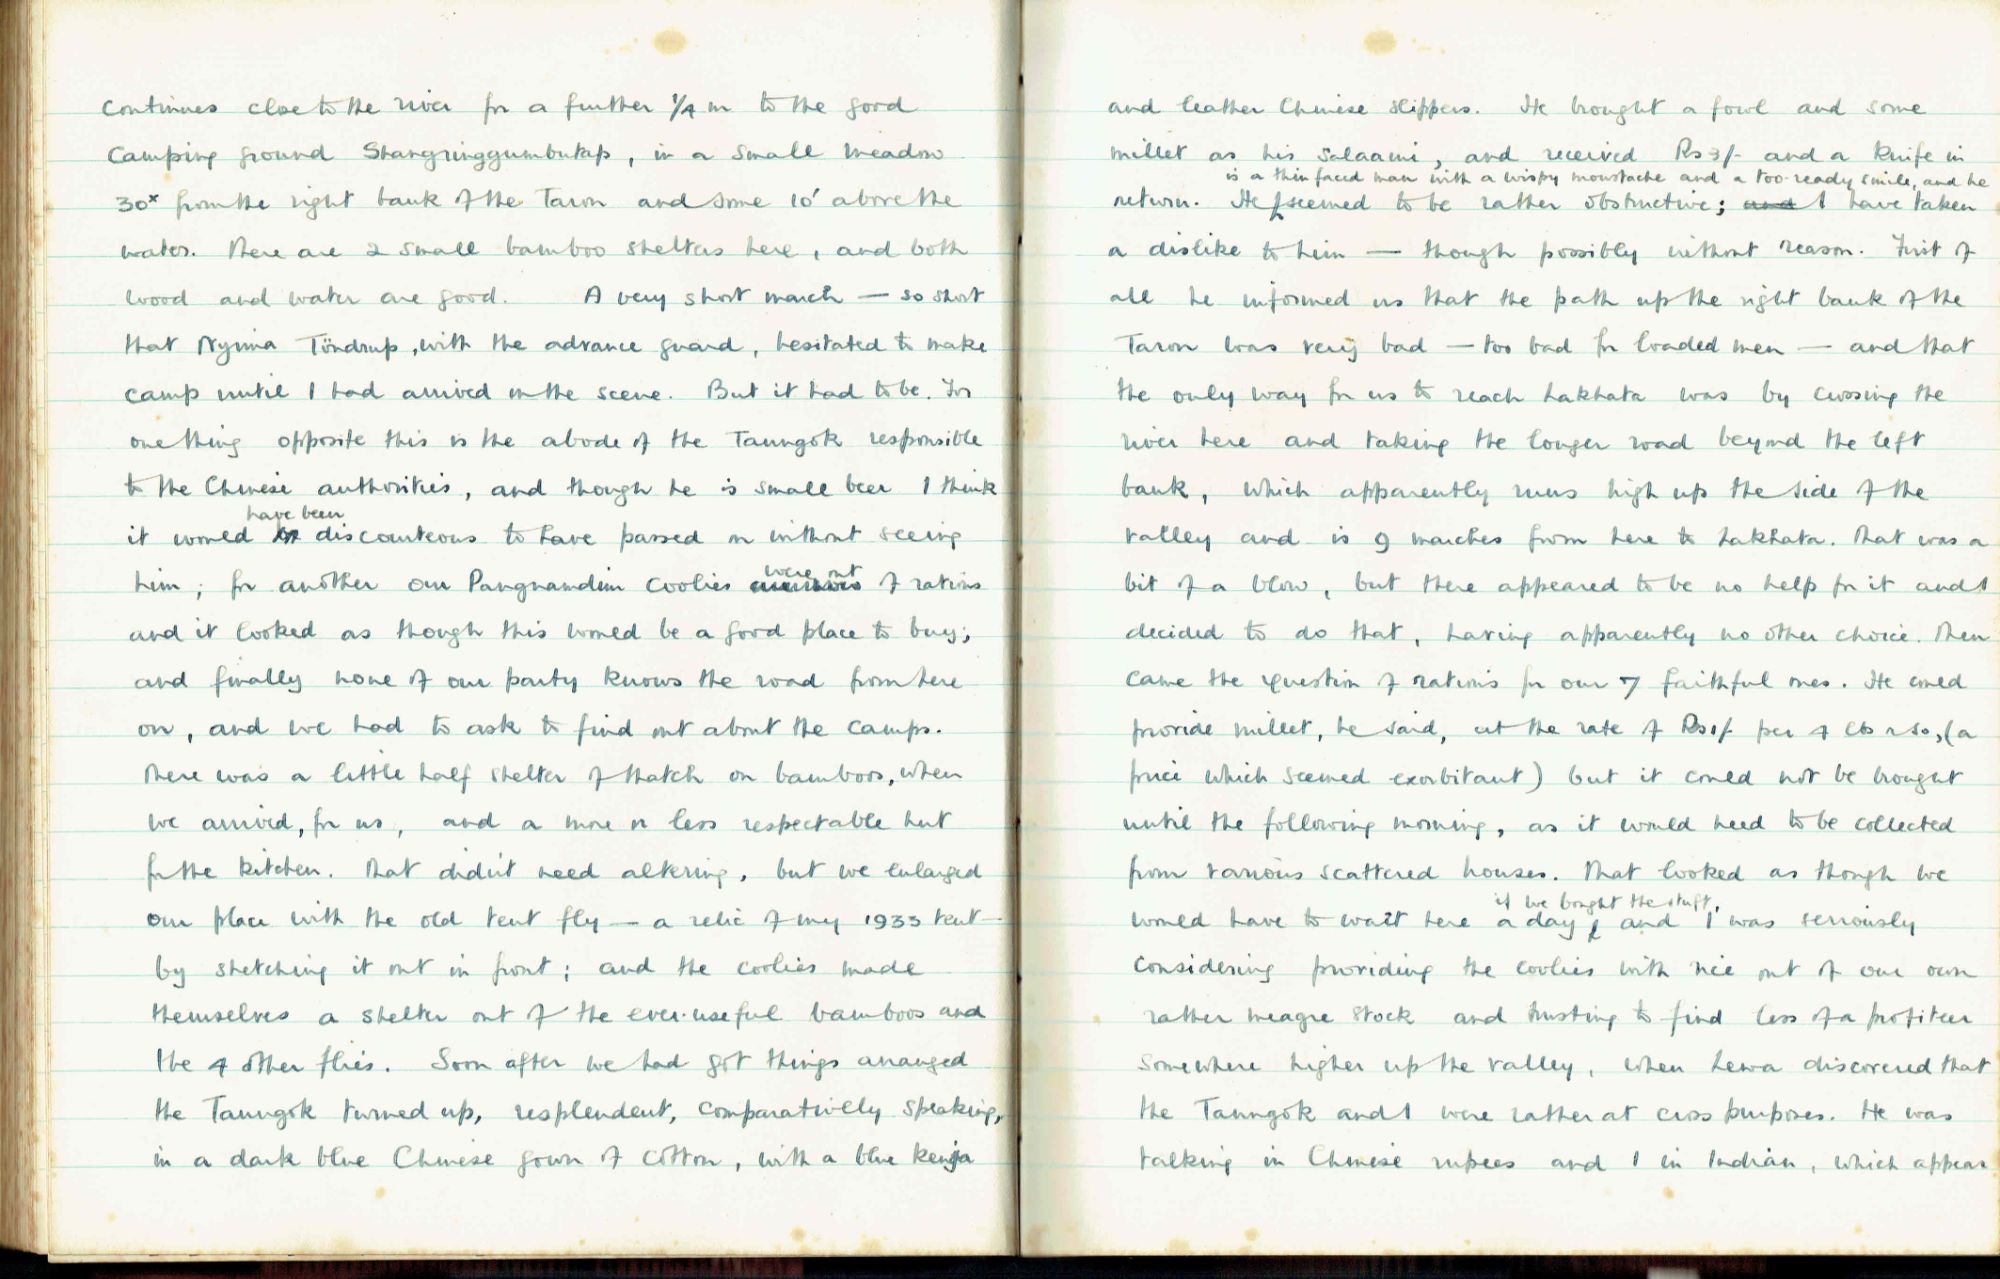 continues close to the river for a further 1/4 m to the good
camping ground Shangringgumbukap, in a small meadow
30ˣ from the right bank of the Taron and some 10' above the
water. There are 2 small bamboo shelters here, and both
wood and water are good. A very short march — so short
that Nyima Töndrup, with the advance guard, hesitated to make
camp until I had arrived on the scene. But it had to be. For
one thing opposite this is the abode of the Taungok responsible
to the Chinese authorities, and though he is small beer I think
have been
it would be discourteous to have passed on without seeing
were out
him; for another our Pangnamdim coolies of rations
and it looked as though this would be a good place to buy;
and finally none of our party knows the road from here
on, and we had to ask to find out about the camps.
There was a little half shelter of thatch on bamboos, when
we arrived, for us, and a more or less respectable hut
for the kitchen. That didn't need altering, but we enlarged
our place with the old tent fly — a relic of my 1933 tent —
by stretching it out in front; and the coolies made
themselves a shelter out of the ever-useful bamboos and
the 4 other flies. Soon after we had got things arranged
the Taungok turned up, resplendent, comparatively speaking,
in a dark blue Chinese gown of cotton, with a blue kenja
and leather Chinese slippers. He brought a fowl and some
millet as his salaami, and received Rs 3/- and a knife in
is a thin faced man with a wispy moustache and a too-ready smile, and he
return. He seemed to be rather obstructive; and I have taken
a dislike to him — though possibly without reason. First of
all he informed us that the path up the right bank of the
Taron was very bad — too bad for loaded men — and that
the only way for us to reach Lakhata was by crossing the
river here and taking the longer road beyond the left
bank, which apparently runs high up the side of the
valley and is 9 marches from here to Lakhata. That was a
bit of a blow, but there appeared to be no help for it and I
decided to do that, having apparently no other choice. Then
came the question of rations for our 7 faithful ones. He could
provide millet, he said, at the rate of Rs1/- per 4 lbs or so, (a
price which seemed exorbitant) but it could not be brought
until the following morning, as it would need to be collected
from various scattered houses. That looked as though we
if we bought the stuff,
would have to wait here a day, and I was seriously
considering providing the coolies with rice out of our own
rather meagre stock and trusting to find less of a profiteer
somewhere higher up the valley, when Lewa discovered that
the Taungok and I were rather at cross purposes. He was
talking in Chinese rupees and I in Indian, which appear